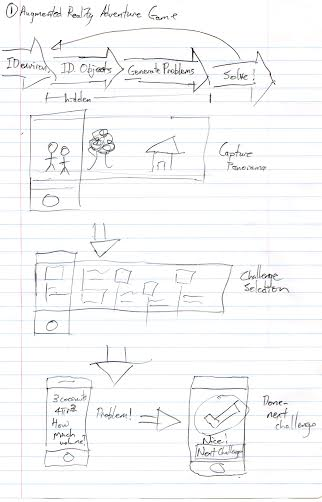 ① Augmented Reality Adventure Game
ID environ.
ID Objects
Generate Problems
Solve!
hidden
Capture
Panorama
Challenge
Selection
How
Much
volume?
Problem!
Nice!
Next Challenge
Done-
next
challenge